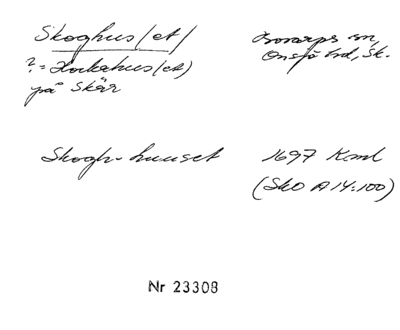 Skoghus(et)
sn,
Onsjö hd, Sk.
? = Hockahus(et)
på Skär
Skogh-huuset
1697 Kaml
(SkO A14:100)
Nr 23308